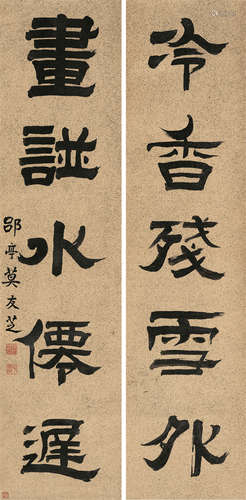 冷香殘雪外
畫譜水僊遲
郘亭莫友芝